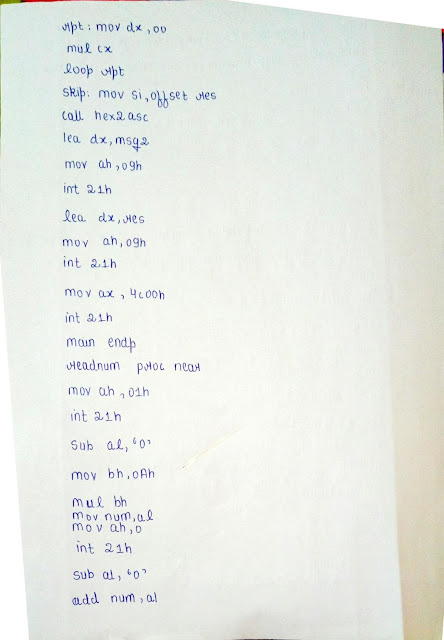 rpt: mov dx,00
mul cx
loop rpt
skip: mov si,offset res
call hex2asc
lea dx,msg2
mov ah,09h
int 21h
lea dx,res
mov ah,09h
int 21h
mov ax,4c00h
int 21h
main endp
readnum proc near
mov ah,01h
int 21h
sub al,‘0’
mov bh,0Ah
mul bh
mov num,al
mov ah,0
int 21h
sub al,‘0’
add num,al